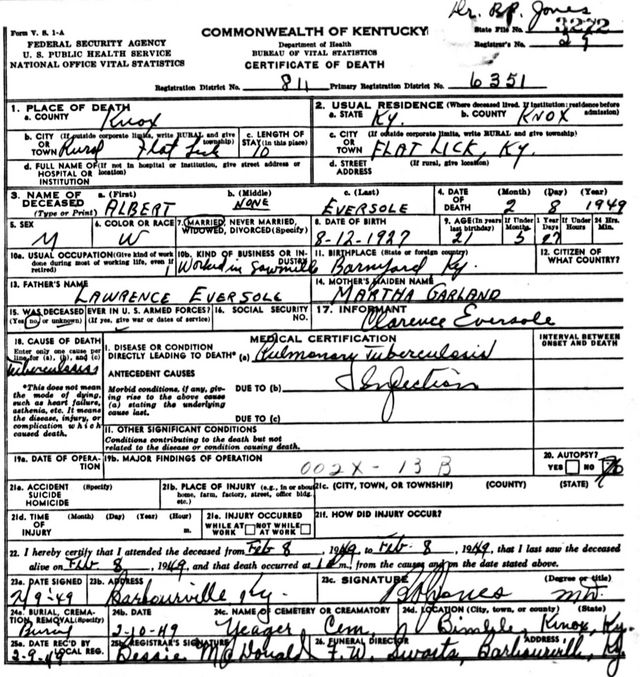 Dr. B.P. Jones
Form V. S. 1-A
COMMONWEALTH OF KENTUCKY
State File No. 3272
FEDERAL SECURITY AGENCY
Department of Health
Registrar's No. 29
U. S. PUBLIC HEALTH SERVICE
BUREAU OF VITAL STATISTICS
NATIONAL OFFICE VITAL STATISTICS
CERTIFICATE OF DEATH
Registration District No. 811 Primary Registration District No. 6351
1. PLACE OF DEATH
a. COUNTY Knox
2. USUAL RESIDENCE (Where deceased lived. If institution: residence before admission)
a. STATE Ky. b. COUNTY KNOX
b. CITY (If outside corporate limits, write RURAL and give township) OR TOWN Rural Flat Lick
c. LENGTH OF STAY (in this place) 10
c. CITY (If outside corporate limits, write RURAL and give township) OR TOWN FLAT LICK, KY.
d. FULL NAME OF (If not in hospital or institution, give street address or location) HOSPITAL OR INSTITUTION
d. STREET ADDRESS (If rural, give location)
3. NAME OF DECEASED (Type or Print)
a. (First) ALBERT
b. (Middle) NONE
c. (Last) EVERSOLE
4. DATE OF DEATH (Month) (Day) (Year) 2 8 1949
5. SEX M
6. COLOR OR RACE W
7. MARRIED, NEVER MARRIED, WIDOWED, DIVORCED (Specify)
8. DATE OF BIRTH 8-12-1927
9. AGE (In years last birthday) 21
If Under 1 Year 5 27
If Under 24 Hrs. Hours Min.
10a. USUAL OCCUPATION (Give kind of work done during most of working life, even if retired)
10b. KIND OF BUSINESS OR INDUSTRY Worked in Sawmills
11. BIRTHPLACE (State or foreign country) Ky.
12. CITIZEN OF WHAT COUNTRY?
13. FATHER'S NAME LAWRENCE EVERSOLE
14. MOTHER'S MAIDEN NAME MARTHA GARLAND
15. WAS DECEASED EVER IN U. S. ARMED FORCES? (Yes, no, or unknown) (If yes, give war or dates of service)
16. SOCIAL SECURITY NO.
17. INFORMANT Clarence Eversole
18. CAUSE OF DEATH
Enter only one cause per line for (a), (b), and (c)
Tuberculosis
*This does not mean the mode of dying, such as heart failure, asthenia, etc. It means the disease, injury, or complication which caused death.
MEDICAL CERTIFICATION
INTERVAL BETWEEN ONSET AND DEATH
I. DISEASE OR CONDITION DIRECTLY LEADING TO DEATH* (a) Pulmonary Tuberculosis
ANTECEDENT CAUSES
Morbid conditions, if any, giving rise to the above cause (a) stating the underlying cause last.
DUE TO (b) Infection
DUE TO (c)
II. OTHER SIGNIFICANT CONDITIONS
Conditions contributing to the death but not related to the disease or condition causing death.
19a. DATE OF OPERATION
19b. MAJOR FINDINGS OF OPERATION
002X-13B
20. AUTOPSY?
YES NO
21a. ACCIDENT SUICIDE HOMICIDE (Specify)
21b. PLACE OF INJURY (e.g., in or about home, farm, factory, street, office bldg. etc.)
21c. (CITY, TOWN, OR TOWNSHIP) (COUNTY) (STATE)
21d. TIME OF INJURY (Month) (Day) (Year) (Hour) m.
21e. INJURY OCCURRED WHILE AT WORK NOT WHILE AT WORK
21f. HOW DID INJURY OCCUR?
22. I hereby certify that I attended the deceased from Feb 8, 1949, to Feb. 8, 1949, that I last saw the deceased
alive on Feb 8, 1949, and that death occurred at m., from the causes and on the date stated above.
23a. DATE SIGNED 2/9-49
23b. ADDRESS Barbourville Ky.
23c. SIGNATURE BP Jones (Degree or title) MD.
24a. BURIAL, CREMATION, REMOVAL (Specify)
24b. DATE 2-10-49
24c. NAME OF CEMETERY OR CREAMATORY Yeager Cem.
24d. LOCATION (City, town, or county) (State) Bimble, Knox, Ky.
25a. DATE REC'D BY LOCAL REG. 2-9-49
25b. REGISTRAR'S SIGNATURE Bessie McDonald
26. FUNERAL DIRECTOR ADDRESS F.W. Swartz, Barbourville, Ky.